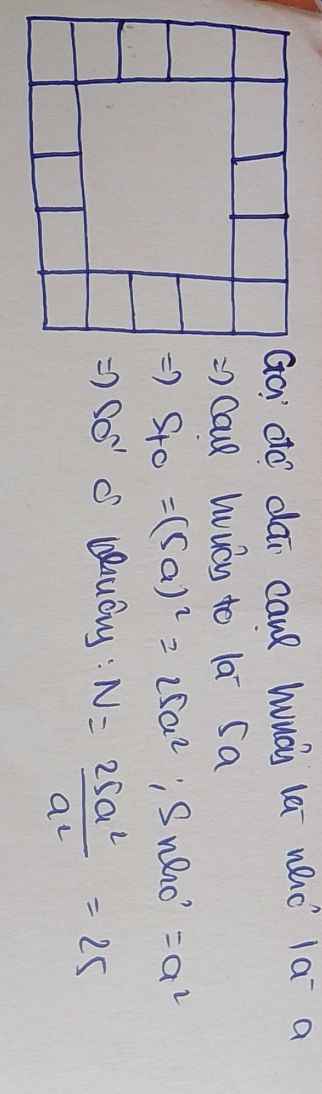 Gọi độ dài cạnh hvuông lát nhỏ là a
=> cạnh hvuông to là 5a
=> S to = (5a)² = 25a² ; S nhỏ = a²
=> Số ô vuông : N = 25a² / a² = 25